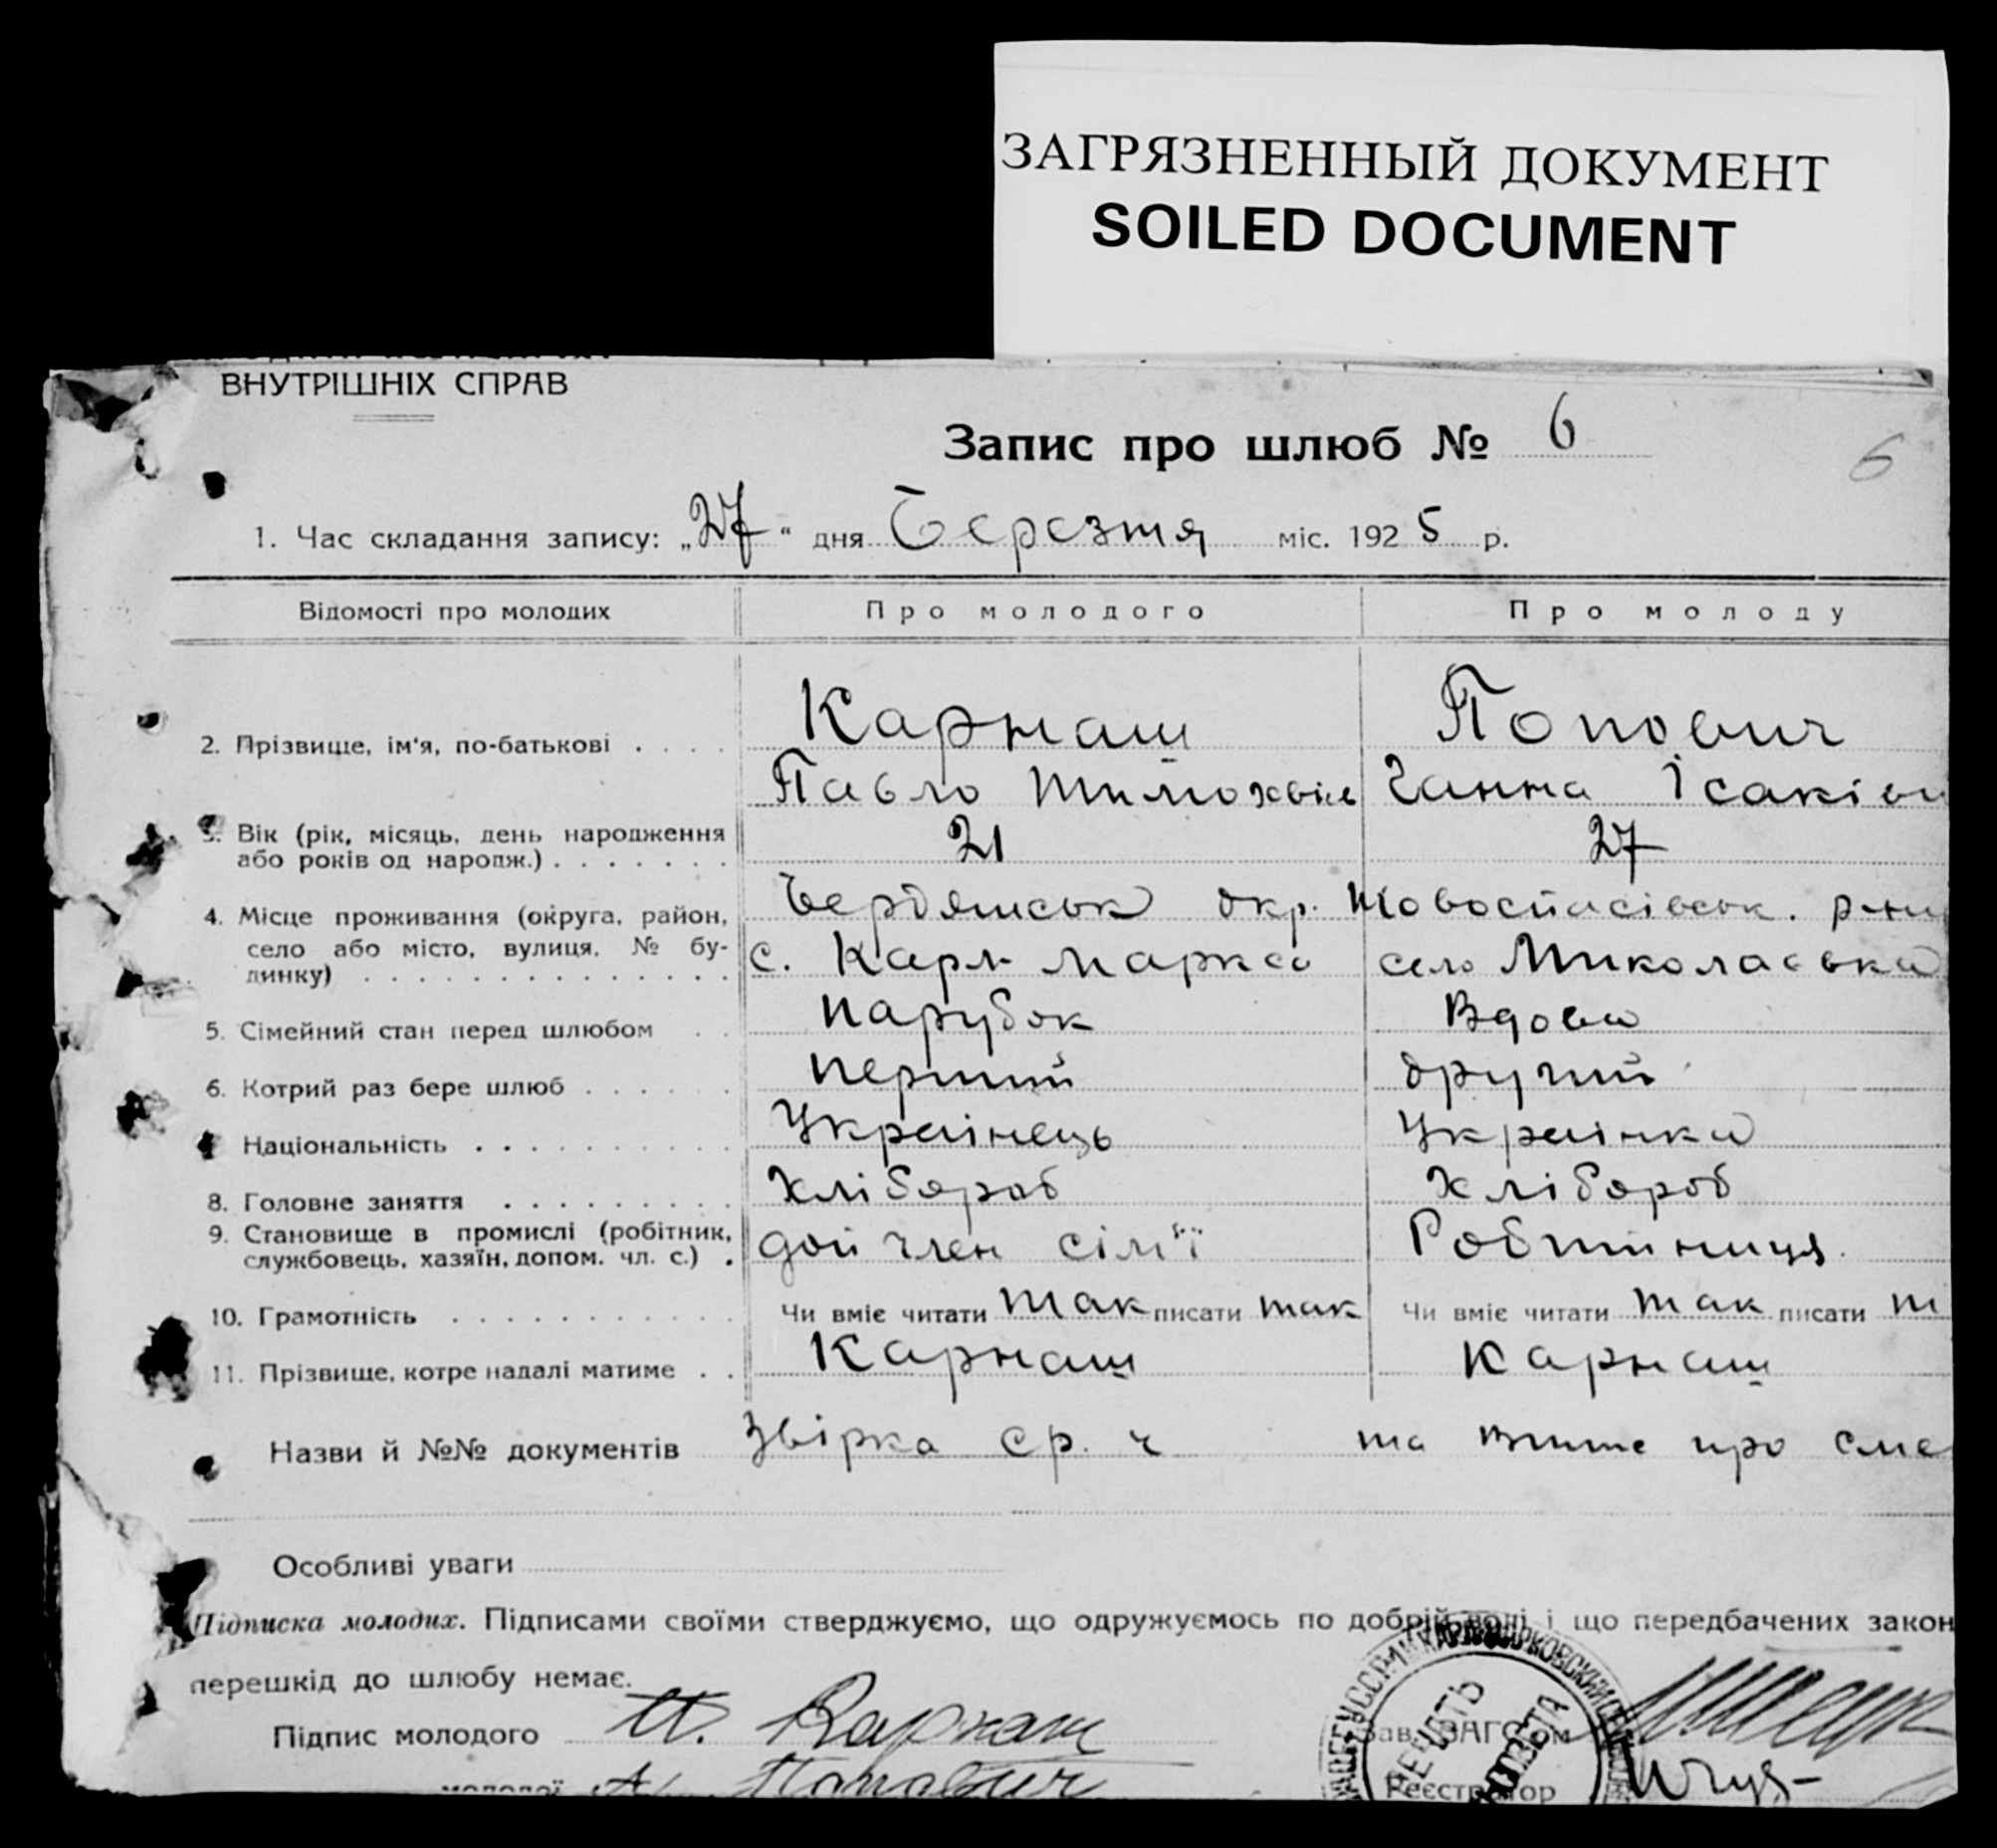 ЗАГРЯЗНЕННЫЙ ДОКУМЕНТ
SOILED DOCUMENT
ВНУТРІШНІХ СПРАВ
Запис про шлюб № 6
6
1. Час складання запису: „27“ дня Березня міс. 1925 р.
Відомості про молодих Про молодого Про молоду
Карнаш Попович
2. Прізвище, ім'я, по-батькові
Павло Тимохвіїв Ганна Ісаківн
3. Вік (рік, місяць, день народження 21 27
або років од народж.)
4. Місце проживання (округа, район, Бердянськ окр. Новоспасівськ. р-ну
село або місто, вулиця, № бу- с. Карл Маркса село Миколаєвка
динку)
5. Сімейний стан перед шлюбом парубок Вдова
6. Котрий раз бере шлюб перший другий
Національність Українець Українка
8. Головне заняття Хлібороб Хлібороб
9. Становище в промислі (робітник, службовець, хазяїн, допом. чл. с.) член сім'ї Робітниця
10. Грамотність Чи вміє читати так писати так Чи вміє читати так писати т
11. Прізвище, котре надалі матиме Карнаш Карнаш
Назви й №№ документів Звірка ср. ч та про сме
Особливі уваги
Підписка молодих. Підписами своїми стверджуємо, що одружуємось по добрій волі і що передбачених закон
перешкід до шлюбу немає.
Підпис молодого П. Карнаш Зав. ЗАГС'ом
молодої А. Попович Реєстратор